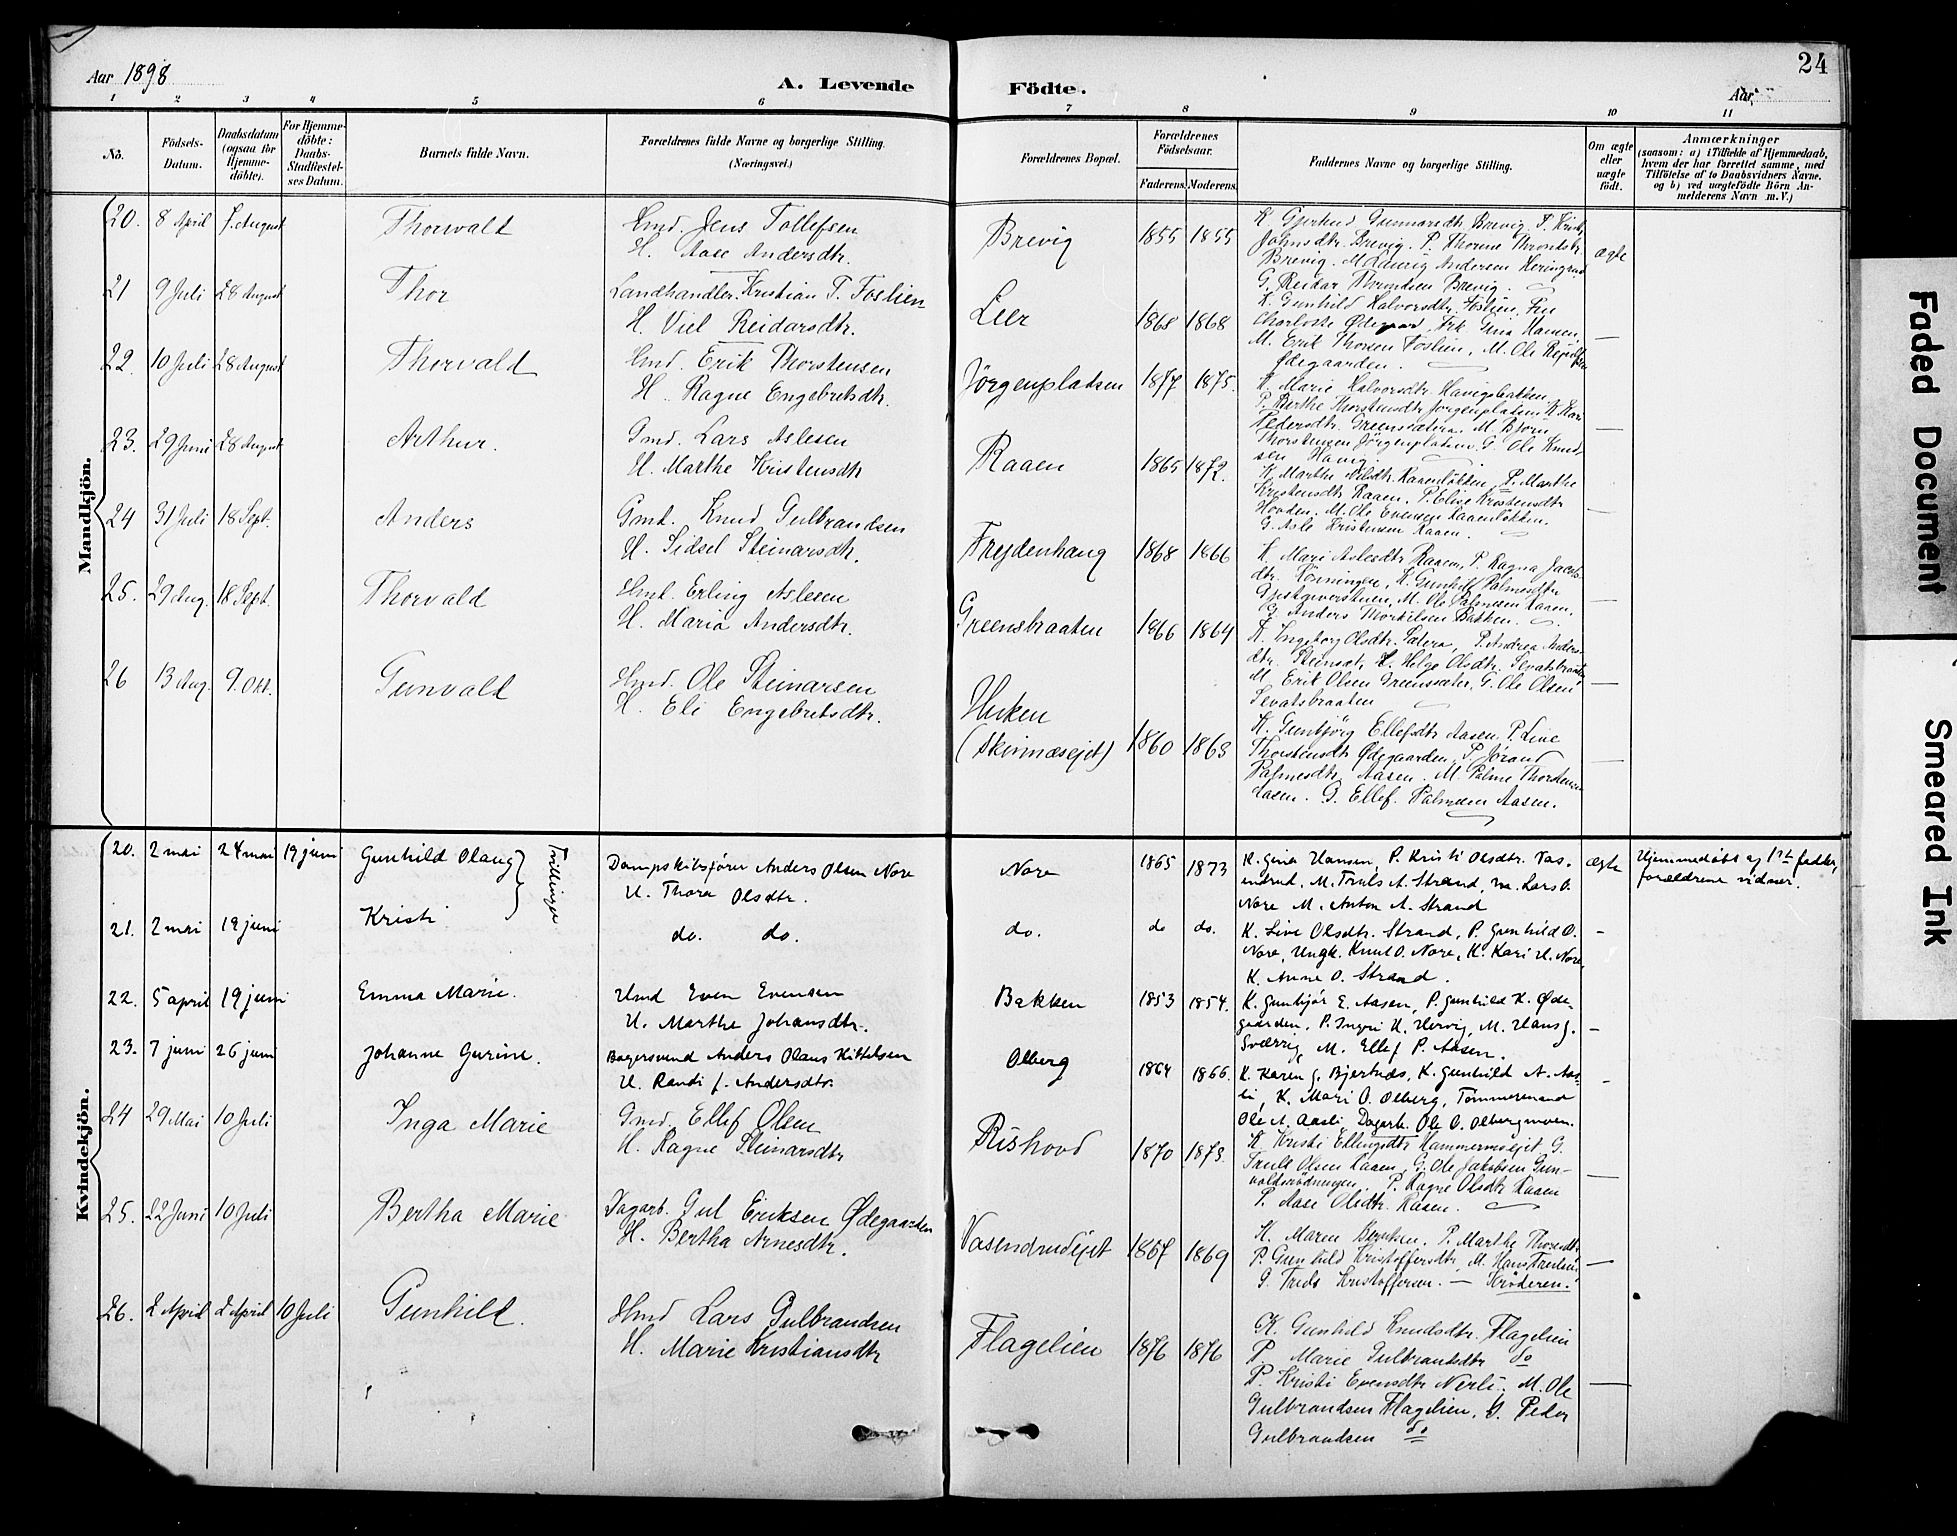 Aar 1898
A. Levende
Födte.
24
Aar
1 2 3 4 5 6 7 8 9 10 11
No.
Födsels-Datum.
Daabsdatum (ogsaa for Hjemme-döbte).
For Hjemme-döbte: Daabs-Stadfæstel-ses Datum.
Barnets fulde Navn.
Forældrenes fulde Navne og borgerlige Stilling. (Næringsvei.)
Forældrenes Bopæl.
Forældrenes Födselsaar.
Faderens. Moderens.
Faddernes Navne og borgerlige Stilling.
Om ægte eller uægte födt.
Anmærkninger
(saasom: a) i Tilfælde af Hjemmedaab,
hvem der har forrettet samme, med
Tilföielse af to Daabsvidners Navne,
og b) ved uægtefödte Börn An-
melderens Navn m. V.)
Mandkjön.
20. 8 April 7. August Thorvald Hmd. Jens Tollefsen
H. Aase Andersdtr. Brevig 1855 1855 ægte
Brevig. M Lauris Andersen
G. Reidar Thronsen Brevig.
21 9 Juli 28 August Thor Landhandler. Kristian T. Foslien
H. Viel Reidarsdtr. Leer 1868 1868 K. Gunhild Halvorsdtr. Foslien,
Charlotte Ødegaard, Frk. Gina Hansen,
M. Erik Thorsen Foslien, M. Ole
Ødegaarden. —
22. 10 Juli 28 August Thorvald Hmd. Erik Thorstensen
H. Ragne Engebretsdtr. Jörgenpladsen 1877 1875. K. Marie Halvorsdtr.
P. Berthe Thorstensdtr Jorgenpladsen K Kari
Pedersdtr. M. Björn
Thorstensen Jörgenpladsen. G. Ole Knud-
sen —
23. 29 Juni 28 August Arthur. Gmd. Lars Aslesen
H. Marthe Kristensdtr Raaen 1865 1872. P. Marthe
Kristensdtr Raaen. P. Elise Kristensdtr
M. Ole Evensen
G. Asle Kristensen Raaen. —
24 31 Juli 18 Sept. Anders Gmd. Knud Gulbrandsen
H. Sidsel Steinarsdtr. Frydenhaug 1868 1866 K Mari Aslesdtr Raaen, P. Ragna Jacobs-
dtr. K. Gunhild Palmesdtr
M. Ole Palmesen Raaen,
G. Anders Thorkilsen Bakken. —
25. 29 Aug. 18 Sept. Thorvald Hmd. Erling Aslesen
H. Maria Andersdtr. Greensbraaten 1866 1864 K. Ingeborg Olsdtr. P. Andrea Anders-
dtr. K. Helge Olsdtr. Sevatsbraaten
M. Erik Olsen G. Ole Olsen
Sevatsbraaten —
26 13 Aug. 9. Okt. Gunvald Hmd. Ole Steinarsen
H. Eli Engebretsdtr. Huken
(Skinnæsejet) 1860 1863 K. Gunbjörg Ellefsdtr Aasen, P. Live
Thorstensdtr Ødegaarden, P. Jörand
Palmesdtr Aasen. M. Palme Thorstensen
Aasen. G. Ellef Palmesen Aasen.
Kvindekjön.
20. 2 mai 24 mai 19 juni Gunhild Olaug Tvillinger Dampskibsfører Anders Olsen Nore
H. Thora Olsdtr. Nore 1865 1873 K. Gina Hansen, P. Kristi Olsdtr. Vas-
endrud, M. Truls A. Strand, m. Lars O.
Nore M. Anton A. Strand ægte Hjemmedøbt af 1ste fadder,
forældrene vidner.
21. 2 mai 19 juni Kristi do. do. do. do do. K. Live Olsdtr. Strand, P. Gunhild O.
Nore, Ungk. Knut O. Nore, K. Kari H. Nore,
K. Anne O. Strand. -
22. 5 april 19 juni Emma Marie. Hmd Even Evensen
H. Marthe Johansdtr. Bakken 1853 1854. K. Gunbjør E. Aasen, P. Gunhild K. Øde-
gaarden, P. Ingri H. Hervig, M. Hans J.
Sværrig, M. Ellef P. Aasen. -
23. 7 juni 26 juni Johanne Gurine. Bagersvend Anders Olaus Kittelsen
H. Randi f. Andersdtr. Olberg 1864 1866. K. Karen G. Bjertnes, K. Gunhild A. Aas-
li, K. Mari O. Olberg, Tømmermand
Ole A. Aasli, Dagarb. Ole O. Olbergmoen. -
24 29 Mai 10 Juli Inga Marie Gmd. Ellef Olsen
H. Ragne Steinarsdtr Rishovd 1870 1873. K Kristi Ellingsdtr Hammersejet G.
Truls Olsen Raaen, G. Ole Jakobsen Gun-
valdsrödningen. P. Ragne Olsdtr Raaen
P. Aase Olsdtr. Raaen. —
25. 22 Juni 10 Juli Bertha Marie Dagarb. Gul Eriksen Ødegaarden
H. Bertha Arnesdtr. Vasendrudejet 1867 1869 K. Maren Berntsen. P. Marthe
P. Gunhild Kristoffersdtr, M. Hans
G. Truls Kristoffersen. — Kröderen. —
26. 2 April 2 April 10 Juli Gunhild. Hmd Lars Gulbrandsen
H. Marie Kristiansdtr Flagelien 1876 1876 K. Gunhild Knudsdtr. Flagelien
P. Marie Gulbrandsdtr do
P. Kristi Evensdtr Nerli. M. Ole
Gulbrandsen Flagelien, G. Peder
Gulbrandsen do —
Faded Document
Smeared Ink